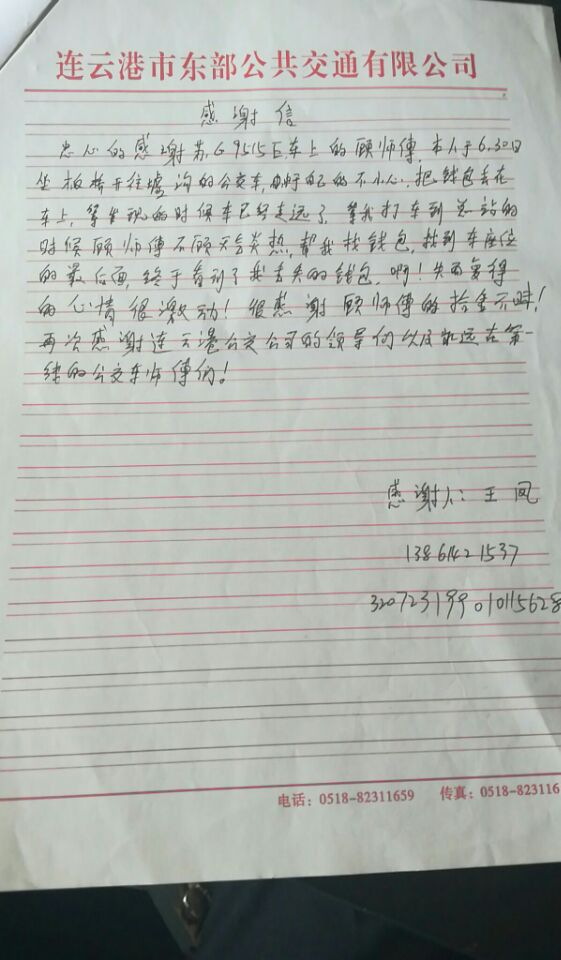 连云港市东部公共交通有限公司
感谢信
忠心的感谢苏G9515E车上的顾师傅,本人于6.30日
坐板桥开往墟沟的公交车,由于自己的不小心,把钱包丢在
车上,等发现的时候车已经走远了,等我打车到总站的
时候顾师傅不顾天气炎热,帮我找钱包,找到车座位
的最后面,终于看到了我丢失的钱包,啊!失而复得
的心情很激动!很感谢顾师傅的拾金不昧!
再次感谢连云港公交公司的领导们以及战斗在第一
线的公交车师傅们!
感谢人:王凤
13861421537
电话:0518-82311659 传真:0518-823116